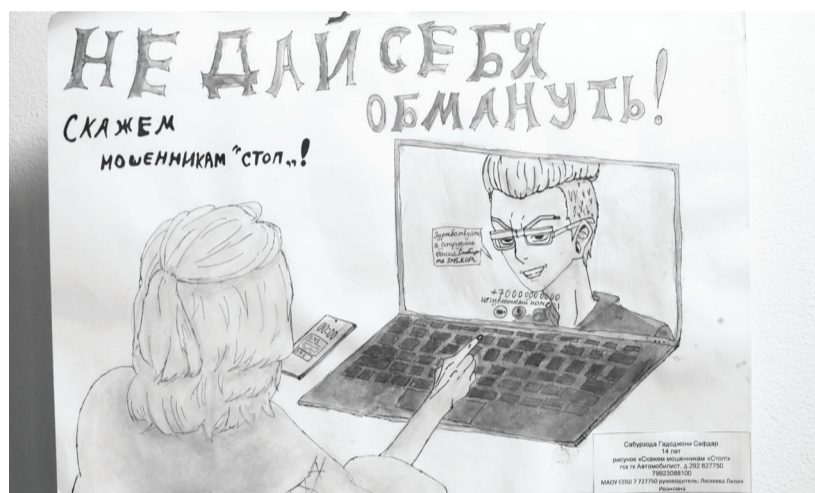 НЕ ДАЙ СЕБЯ
ОБМАНУТЬ!
СКАЖЕМ
МОШЕННИКАМ "СТОП„!
Здравствуйте
я сотрудник
банка
+70000000000
Неизвестный номер
00:00
Сабурзода Гадоджони Сафдар
14 лет
рисунок «Скажем мошенникам «Стоп!»
гск гк Автомобилист, д.292 627750
79923088100
МАОУ СОШ 7 727750 руководитель: Люляева Лилия
Ивановна